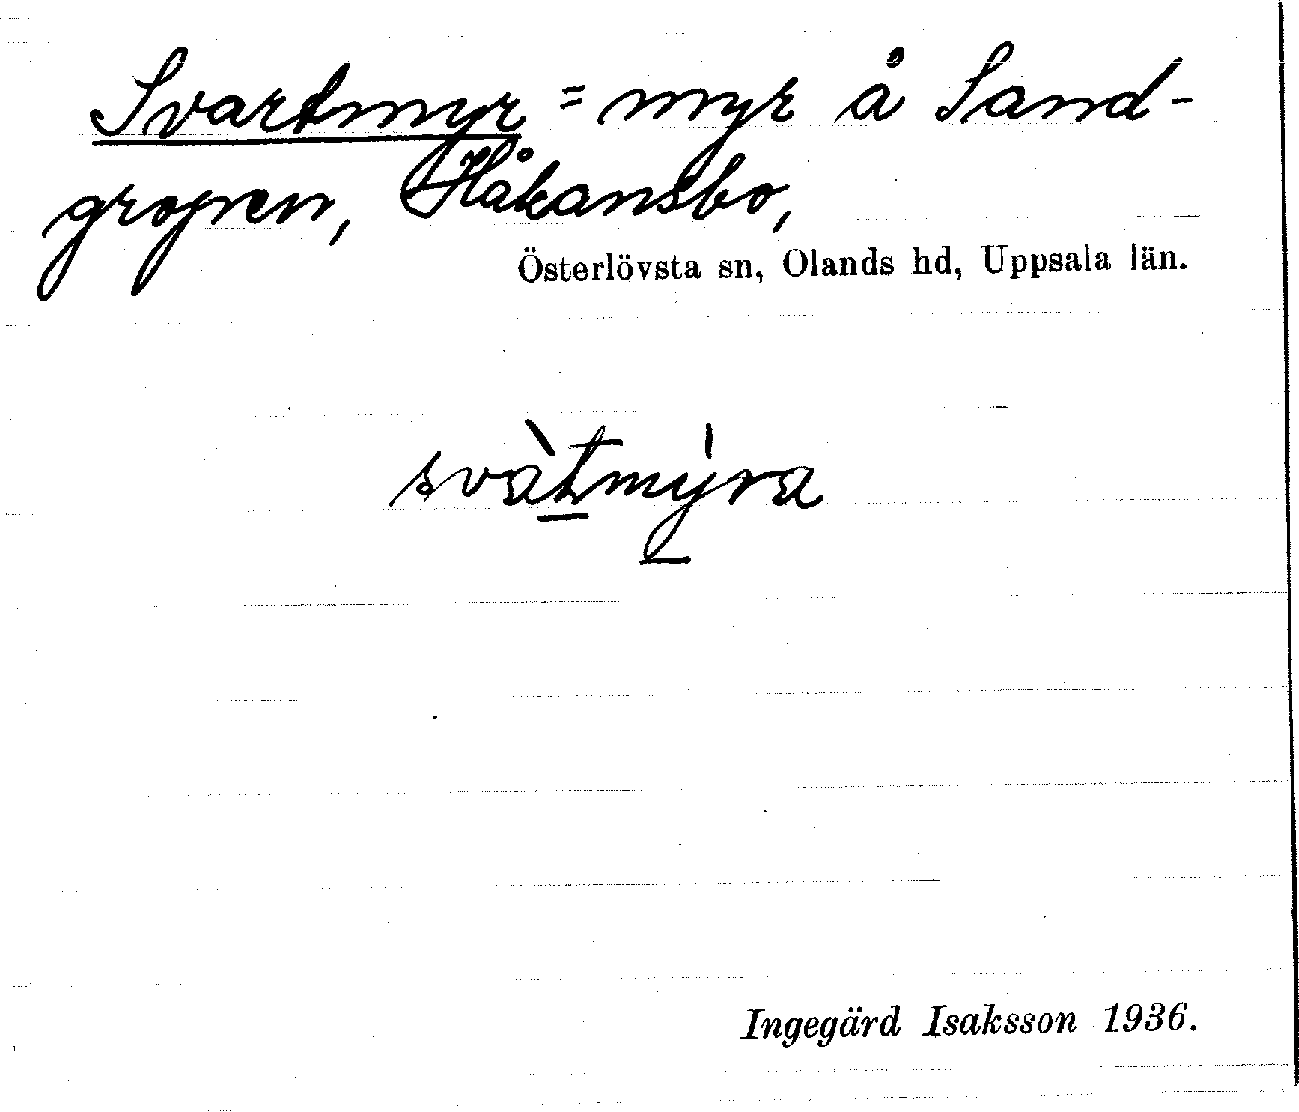 Svartmyr = myr å Sand-
gropen, Håkansbo,
Österlövsta sn, Olands hd, Uppsala län.
svàtmýra
Ingegärd Isaksson 1936.